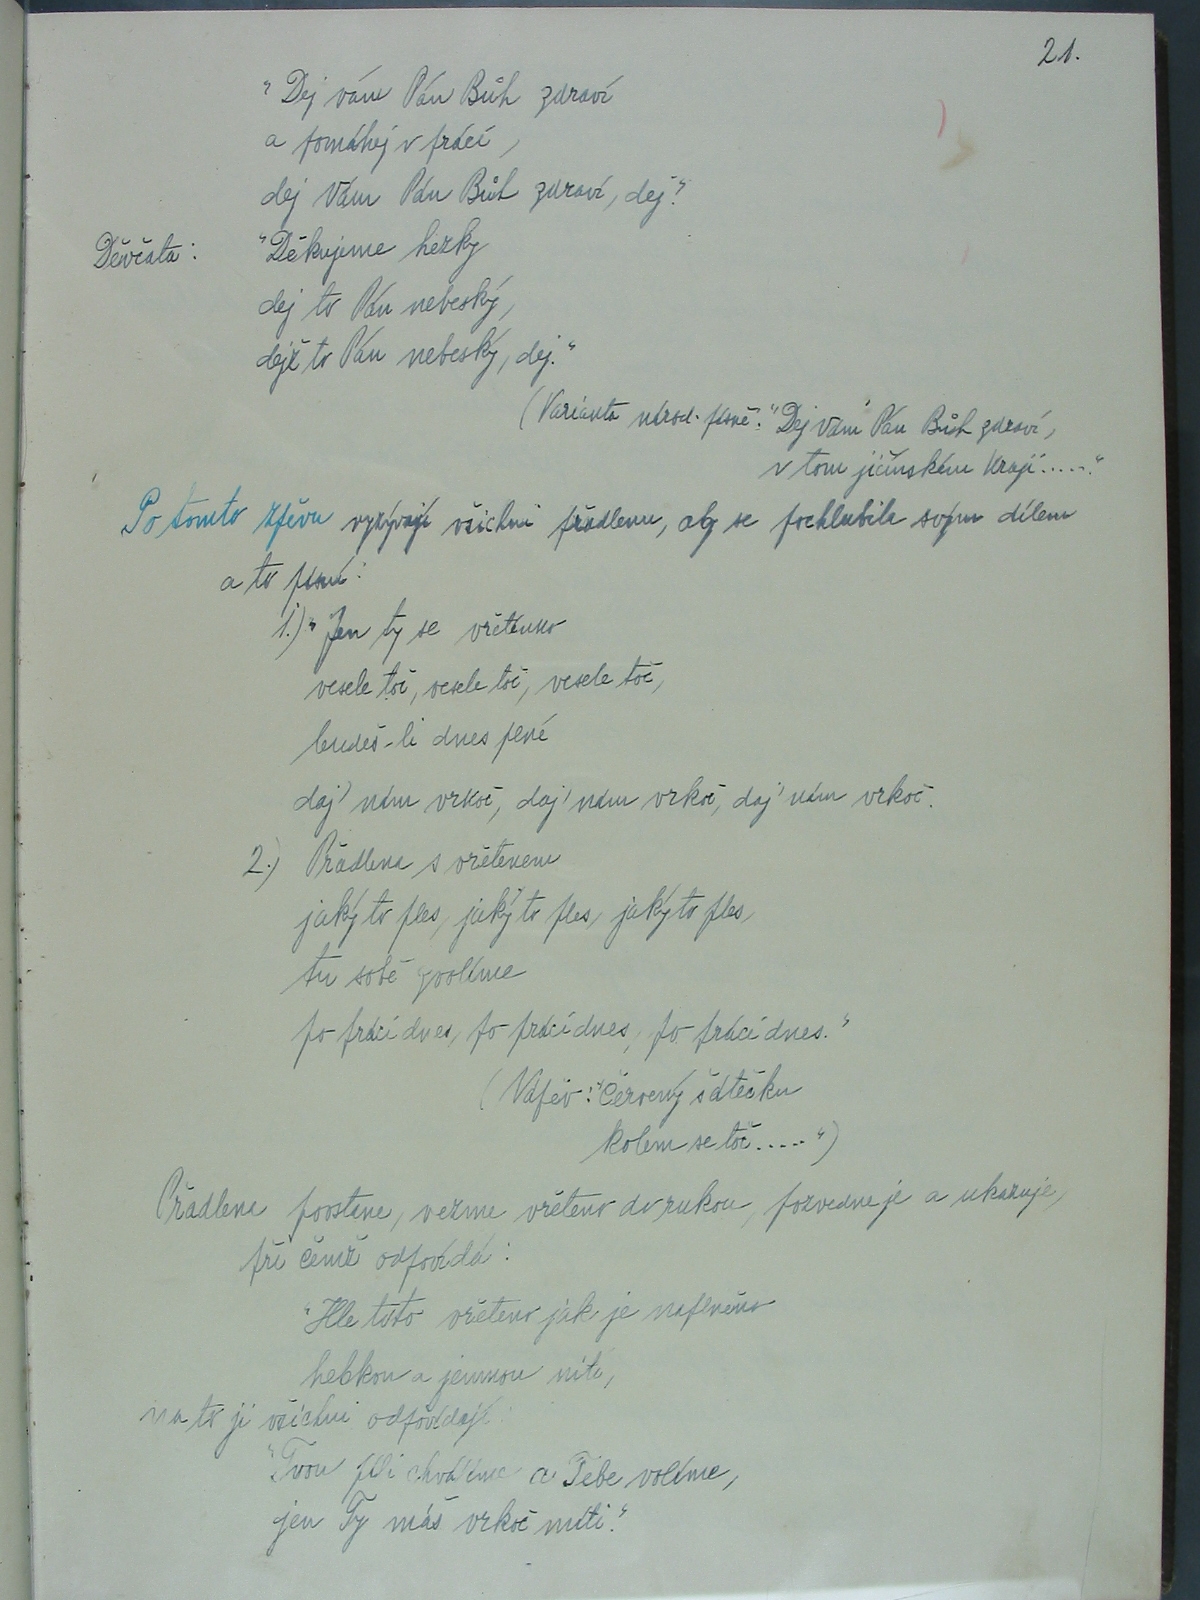 21.
"Dej vám Pán Bůh zdraví
a pomáhej v práci,
dej Vám Pán Bůh zdraví, dej."
Děvčata: "Děkujeme hezky
dej to Pán nebeský,
dejž to Pán nebeský, dej."
(Varianta národ. písně: "Dej Vám Pán Bůh zdraví,
v tom jičínském kraji....."
Po tomto zpěvu vyzývají všichni přadlenu, aby se pochlubila svým dílem
a to písní:
1.) "Jen ty se vřeténko
vesele toč, vesele toč, vesele toč,
budeš-li dnes plné
daj' nám vrkoč, daj' nám vrkoč, daj' nám vrkoč.
2.) Přadlena s vřetenem
jaký to ples, jaký to ples, jaký to ples,
tu sobě zvolíme
po práci dnes, po práci dnes, po práci dnes."
(Nápěv: "Červený šátečku
kolem se toč....")
Přadlena povstane, vezme vřeteno do rukou, pozvedne je a ukazuje,
při čemž odpovídá:
"Hle toto vřeteno jak je napleněno
hebkou a jemnou nití,
na to jí všichni odpovídají:
"Tvou píli chválíme a Tebe volíme,
jen Ty máš vrkoč míti."